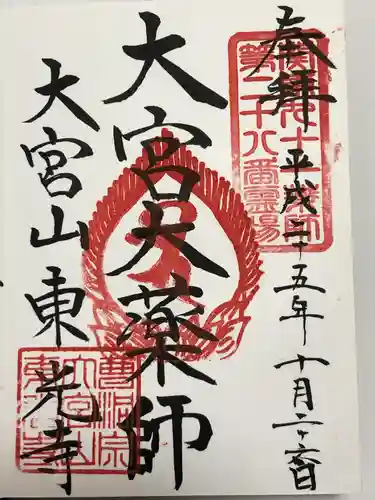 奉拝
平成二十五年十月二十六日
大宮大薬師
大宮山東光寺
関東九十一薬師
第二十八番霊場
曹洞宗
大宮山
東光寺